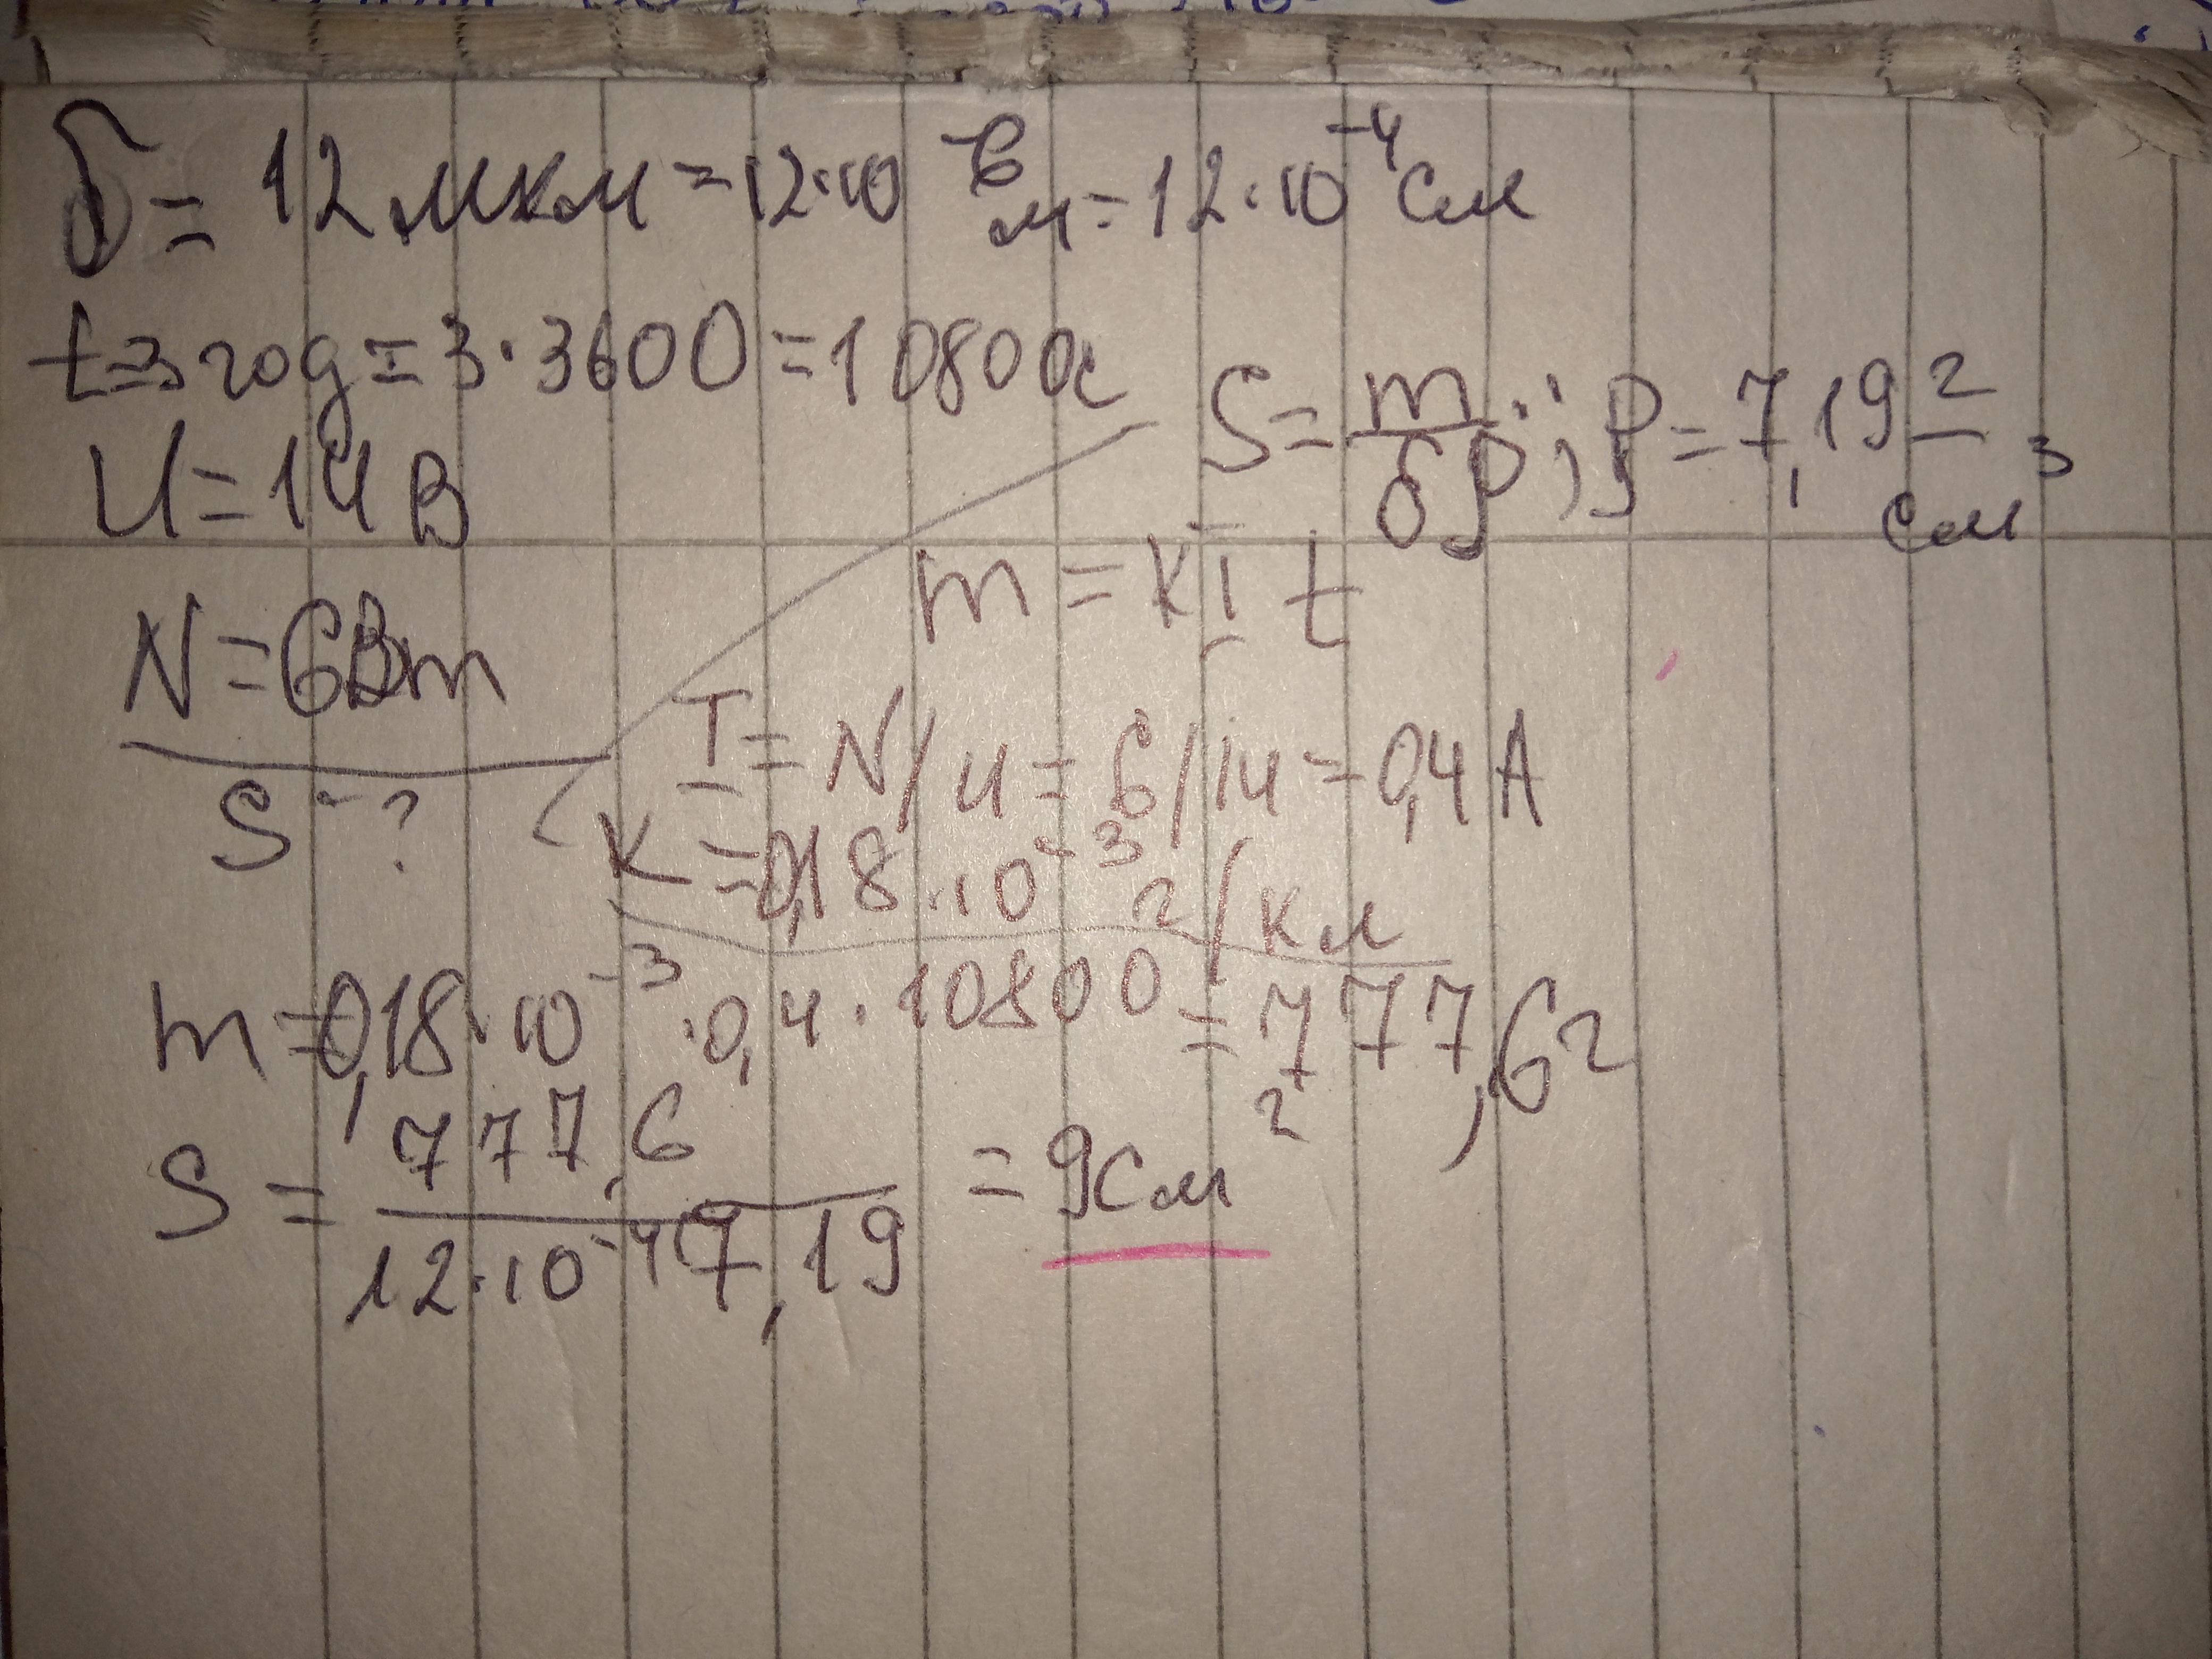 δ = 12 мкм = 12·10⁻⁶ м = 12·10⁻⁴ см
t = 3 год = 3·3600 = 10800 с
U = 14 В
S = m/δρ ; ρ = 7,19 г/см³
m = kIt
N = 6Вт
I = N/U = 6/14 = 0,4 А
S - ?
k = 0,18·10⁻³ г/Кл
m = 0,18·10⁻³·0,4·10800 = 777,6 г
S = 777,6 / 12·10⁻⁴·7,19 = 9 см²